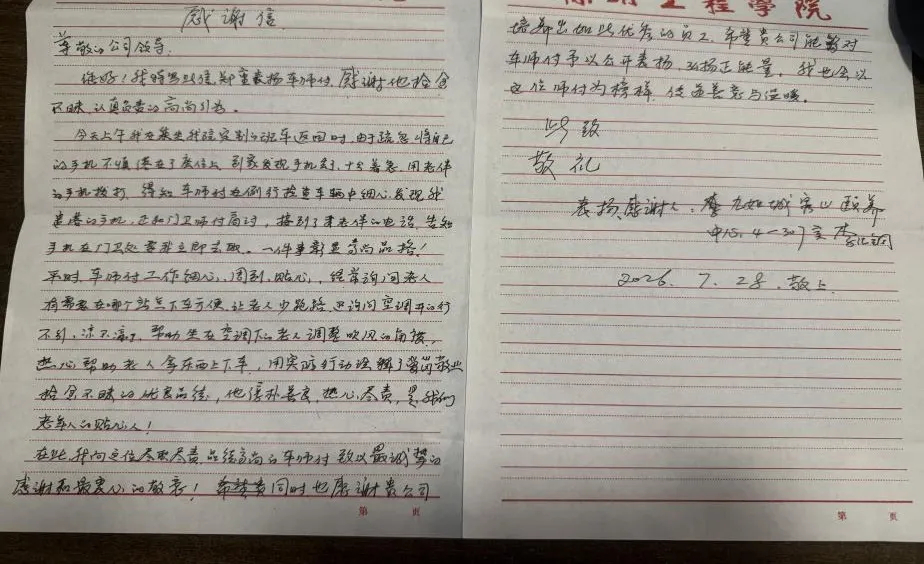 感谢信
尊敬的公司领导:
您好!我特写此信,郑重表扬车师付,感谢他拾金
不昧、认真负责的高尚行为。
今天上午我在乘坐我院定制的班车返回时,由于疏忽,将自己
的手机不慎落在了座位上,到家发现手机丢了,十分着急,用老伴
的手机拨打,得知车师付在例行检查车辆中细心发现我
遗落的手机,正和门卫师付商讨,接到了来老伴的电话,告知
手机在门卫处,要我立即去取。一件事彰显高尚品格!
平时,车师付工作细心、周到、贴心,经常询问老人
有需要在哪个站点下车方便,让老人少跑路,还询问空调开的行
不行,凉不凉,帮助坐在空调下的老人调整吹风的角度,
热心帮助老人拿东西上下车,用实际行动诠释了爱岗敬业
拾金不昧的优良品德,他淳朴善良,热心尽责,是我们
老年人的贴心人!
在此,我向这位尽职尽责、品德高尚的车师付致以最诚挚的
感谢和最衷心的敬意!希望贵同时也感谢贵公司
工程学院
培养出如此优秀的员工,希望贵公司能够对
车师付予以公开表扬,弘扬正能量。我也会以
这位师付为榜样,传递善意与温暖。
此致
敬礼
表扬、感谢人:九如城 颐养
中心4-307室
2026.7.28.敬上
第 页
第 页